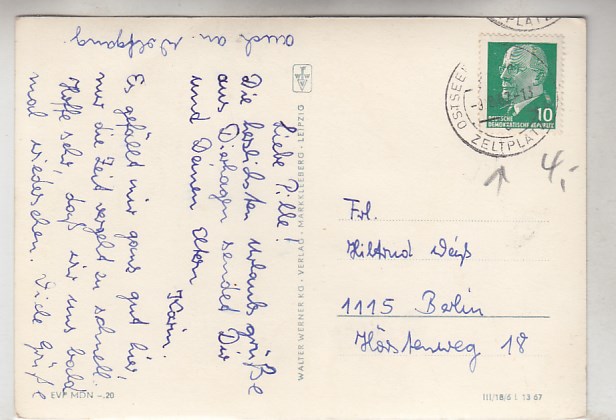 Liebe Pille!
Die herzlichsten Urlaubsgrüße
aus Dierhagen sendet Dir
und Deinen Eltern
Karin.
Es gefällt mir ganz gut hier,
nur die Zeit vergeht zu schnell.
Hoffe sehr, daß wir uns bald
mal wiedersehen. Viele Grüße
auch an Wolfgang.
WALTER WERNER KG · VERLAG · MARKKLEEBERG · LEIPZIG
EVP MDN –.20
10
DEUTSCHE
DEMOKRATISCHE REPUBLIK
OSTSEE
ZELTPLATZ
4,-
Frl.
Hiltrud Weiß
1115 Berlin
Hörstenweg 18
III/18/6 L 13 67